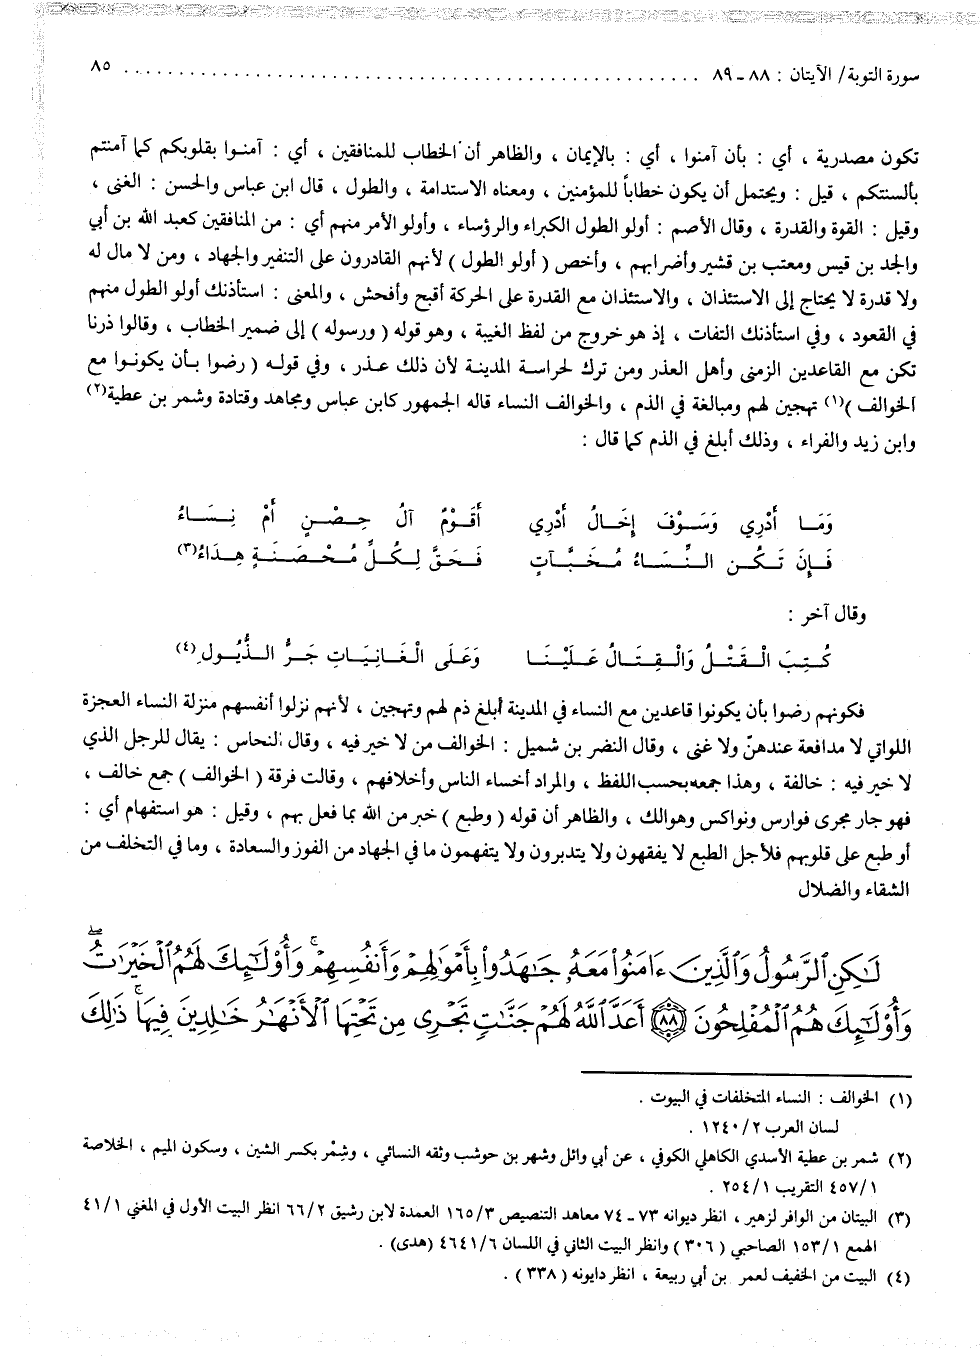 سورة التوبة/ الآيتان : ٨٨ ـ ٨٩ ........................................................ ٨٥
تكون مصدرية ، أي : بأن آمنوا ، أي : بالإيمان ، والظاهر أن الخطاب للمنافقين ، أي : آمنوا بقلوبكم كما آمنتم
بألسنتكم ، قيل : ويحتمل أن يكون خطاباً للمؤمنين ، ومعناه الاستدامة ، والطول ، قال ابن عباس والحسن : الغنى ،
وقيل : القوة والقدرة ، وقال الأصم : أولو الطول الكبراء والرؤساء ، وأولو الأمر منهم أي : من المنافقين كعبد الله بن أبي
والجد بن قيس ومعتب بن قشير وأضرابهم ، وأخص ( أولو الطول ) لأنهم القادرون على التنفير والجهاد ، ومن لا مال له
ولا قدرة لا يحتاج إلى الاستئذان ، والاستئذان مع القدرة على الحركة أقبح وأفحش ، والمعنى : استأذنك أولو الطول منهم
في القعود ، وفي استأذنك التفات ، إذ هو خروج من لفظ الغيبة ، وهو قوله ( ورسوله ) إلى ضمير الخطاب ، وقالوا ذرنا
تكن مع القاعدين الزمنى وأهل العذر ومن ترك لحراسة المدينة لأن ذلك عذر ، وفي قوله ( رضوا بأن يكونوا مع
الخوالف )(١) تهجين لهم ومبالغة في الذم ، والخوالف النساء قاله الجمهور كابن عباس ومجاهد وقتادة وشمر بن عطية(٢)
وابن زيد والفراء ، وذلك أبلغ في الذم كما قال :
وَمَا أَدْرِي وَسَوْفَ إِخَالُ أَدْرِي أَقَوْمٌ آلُ حِصْنٍ أَمْ نِسَاءُ
فَإِنَ تَكُن النِّسَاءُ مُخَبَّآتٍ فَحَقَّ لِكُلِّ مُحْصَنَةٍ هِدَاءُ(٣)
وقال آخر :
كُتِبَ الْقَتْلُ وَالْقِتَالُ عَلَيْنَا وَعَلَى الْغَانِيَاتِ جَرُّ الذُّيُولِ(٤)
فكونهم رضوا بأن يكونوا قاعدين مع النساء في المدينة أبلغ ذم لهم وتهجين ، لأنهم نزلوا أنفسهم منزلة النساء العجزة
اللواتي لا مدافعة عندهنّ ولا غنى ، وقال النضر بن شميل : الخوالف من لا خير فيه ، وقال النحاس : يقال للرجل الذي
لا خير فيه : خالفة ، وهذا جمعه بحسب اللفظ ، والمراد أخساء الناس وأخلافهم ، وقالت فرقة ( الخوالف ) جمع خالف ،
فهو جار مجرى فوارس ونواكس وهوالك ، والظاهر أن قوله ( وطبع ) خبر من الله بما فعل بهم ، وقيل : هو استفهام أي :
أو طبع على قلوبهم فلأجل الطبع لا يفقهون ولا يتدبرون ولا يتفهمون ما في الجهاد من الفوز والسعادة ، وما في التخلف من
الشقاء والضلال
لَٰكِنِ ٱلرَّسُولُ وَٱلَّذِينَ ءَامَنُوا۟ مَعَهُۥ جَٰهَدُوا۟ بِأَمْوَٰلِهِمْ وَأَنفُسِهِمْ ۚ وَأُو۟لَٰٓئِكَ لَهُمُ ٱلْخَيْرَٰتُ ۖ
وَأُو۟لَٰٓئِكَ هُمُ ٱلْمُفْلِحُونَ ﴿٨٨﴾ أَعَدَّ ٱللَّهُ لَهُمْ جَنَّٰتٍ تَجْرِى مِن تَحْتِهَا ٱلْأَنْهَٰرُ خَٰلِدِينَ فِيهَا ۚ ذَٰلِكَ
(١) الخوالف : النساء المتخلفات في البيوت .
لسان العرب ١٢٤٠/٢ .
(٢) شمر بن عطية الأسدي الكاهلي الكوفي ، عن أبي وائل وشهر بن حوشب وثقه النسائي ، وشِمْر بكسر الشين ، وسكون الميم ، الخلاصة
٤٥٧/١ التقريب ٢٥٤/١ .
(٣) البيتان من الوافر لزهير ، انظر ديوانه ٧٣ ـ ٧٤ معاهد التنصيص ١٦٥/٣ العمدة لابن رشيق ٦٦/٢ انظر البيت الأول في المغني ٤١/١
الهمع ١٥٣/١ الصاحبي ( ٣٠٦ ) وانظر البيت الثاني في اللسان ٤٦٤١/٦ (هدى) .
(٤) البيت من الخفيف لعمر بن أبي ربيعة ، انظر دايونه ( ٣٣٨ ) .